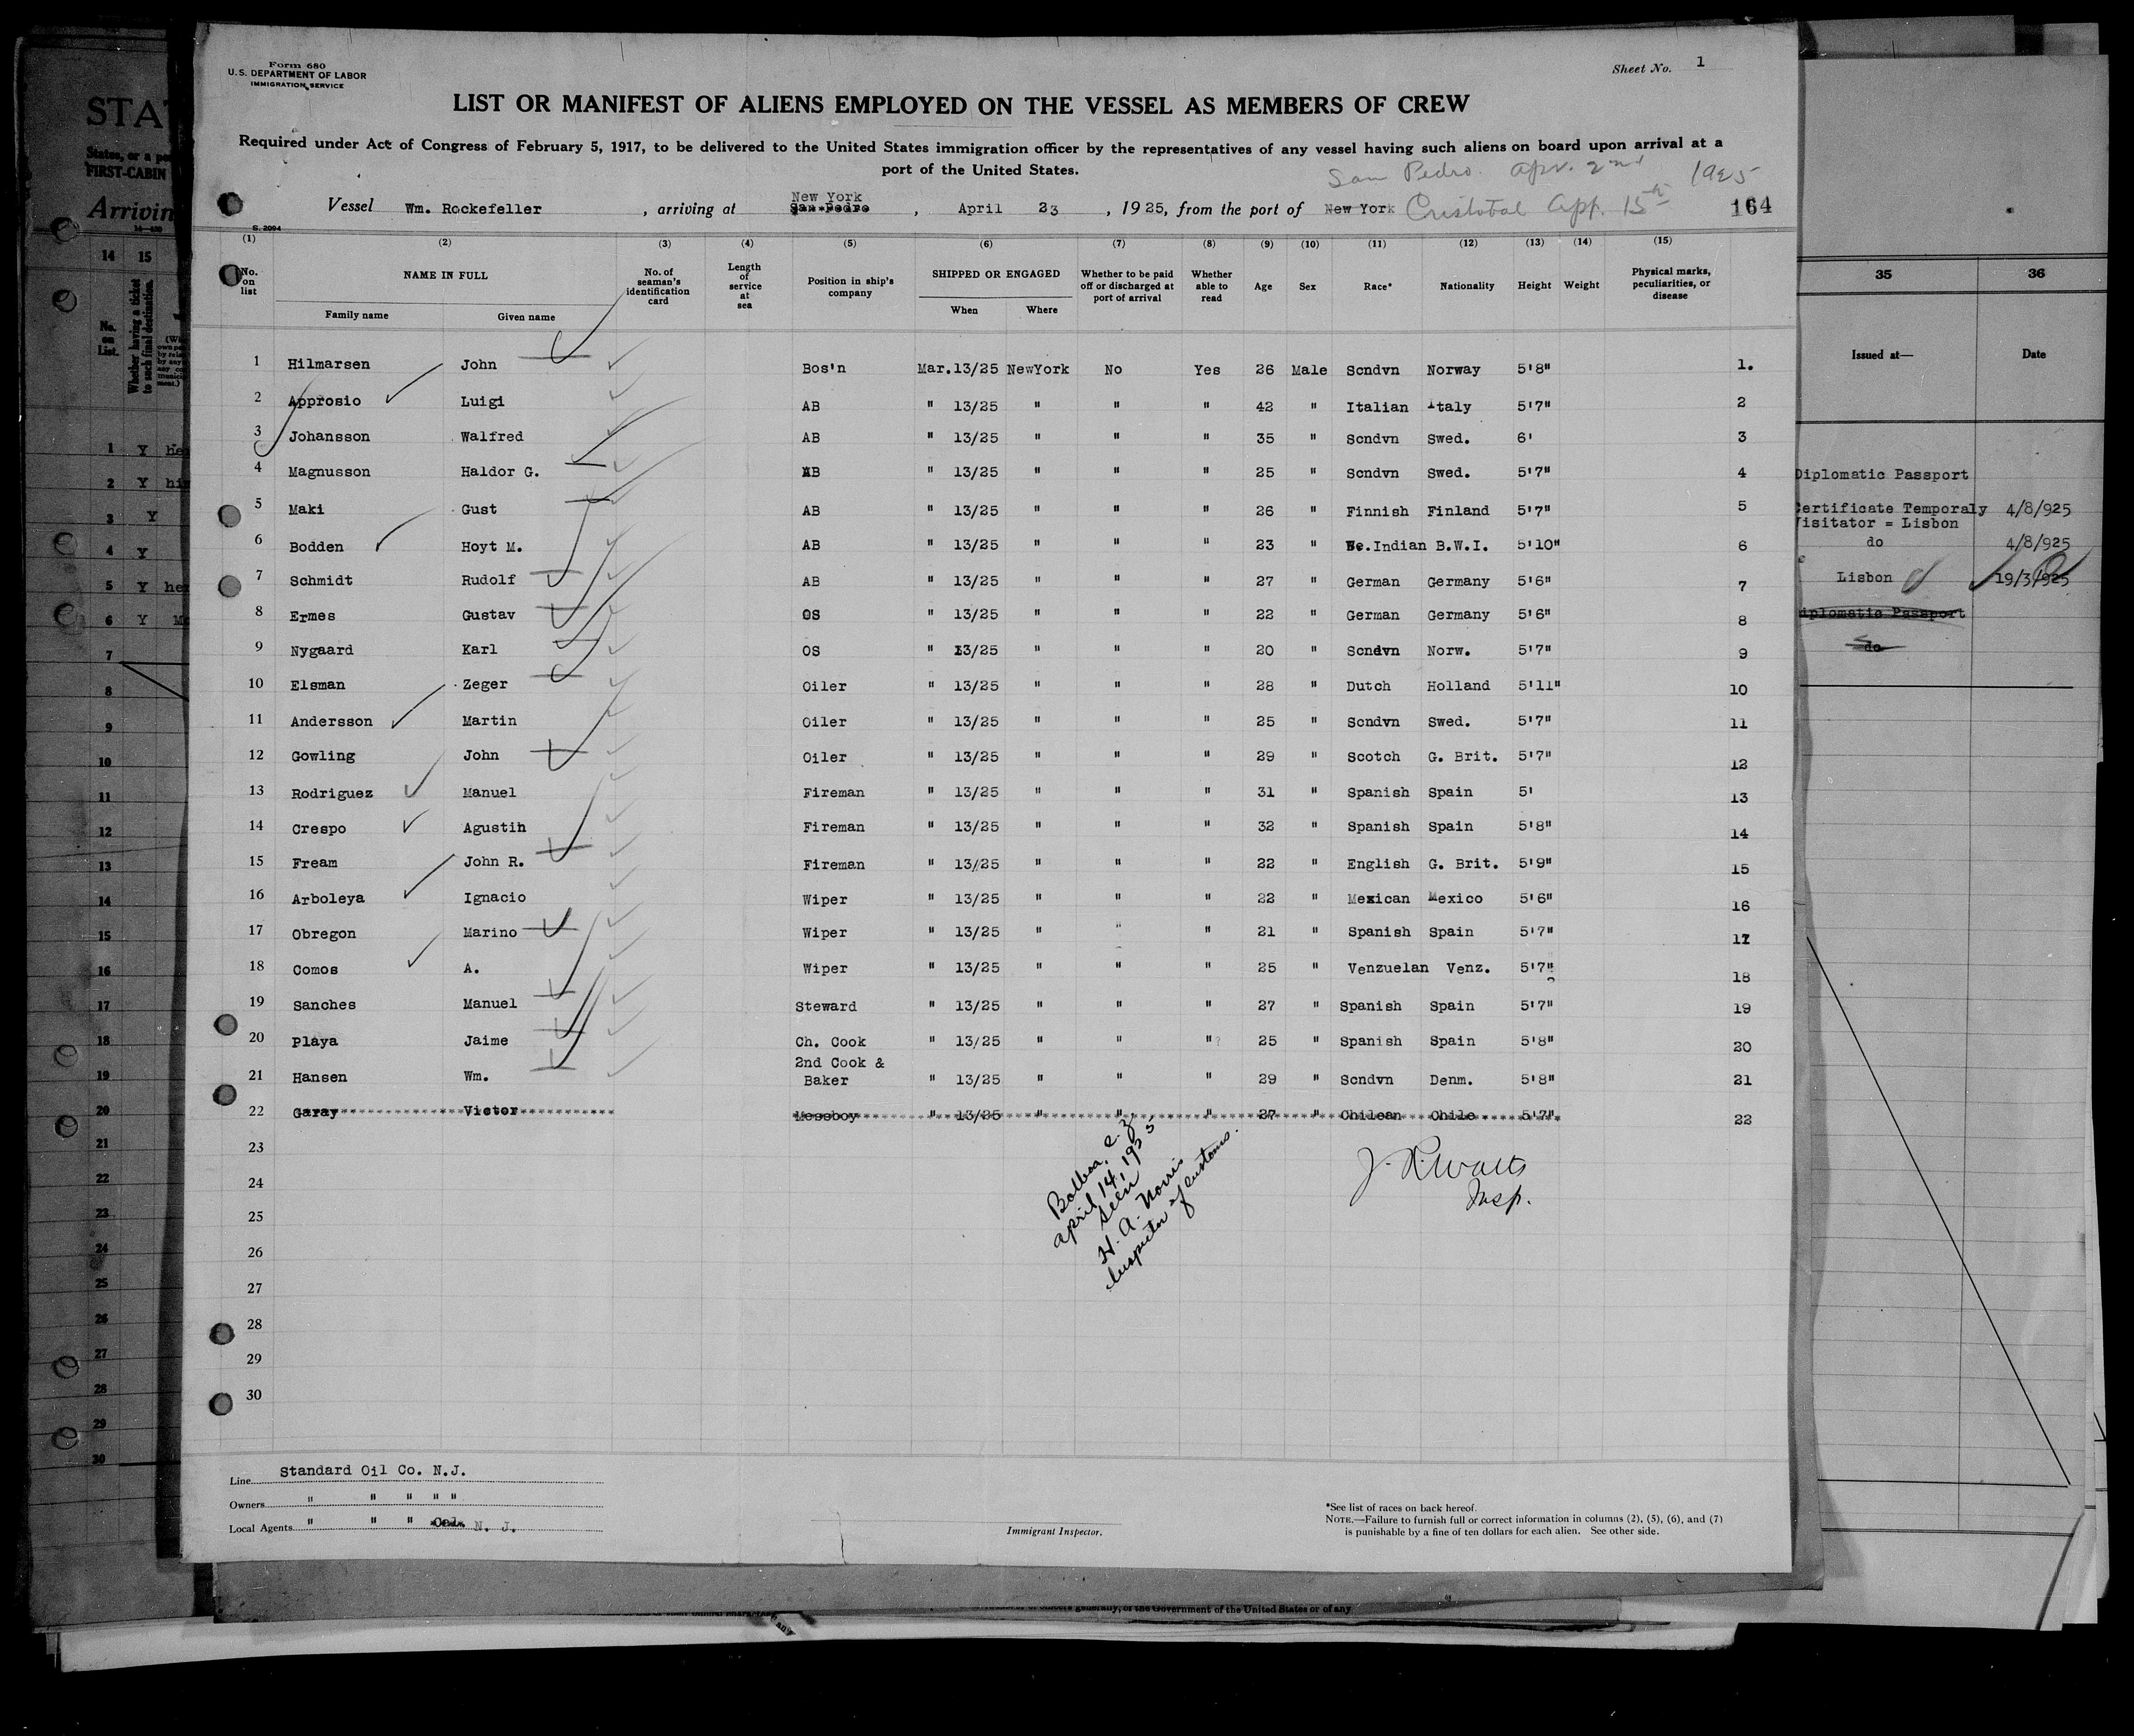 Form 680
U.S. DEPARTMENT OF LABOR
IMMIGRATION SERVICE
Sheet No. 1
LIST OR MANIFEST OF ALIENS EMPLOYED ON THE VESSEL AS MEMBERS OF CREW
Required under Act of Congress of February 5, 1917, to be delivered to the United States immigration officer by the representatives of any vessel having such aliens on board upon arrival at a
port of the United States.
San Pedro. Apr. 2nd 1925
New York
Vessel Wm. Rockefeller, arriving at San Pedro, April 23, 1925, from the port of New York Cristobal App. 15th 164
S. 2094
(1) (2) (3) (4) (5) (6) (7) (8) (9) (10) (11) (12) (13) (14) (15)
No. on list NAME IN FULL Family name Given name No. of seaman's identification card Length of service at sea Position in ship's company SHIPPED OR ENGAGED When Where Whether to be paid off or discharged at port of arrival Whether able to read Age Sex Race* Nationality Height Weight Physical marks, peculiarities, or disease
1 Hilmarsen John Bos'n Mar.13/25 NewYork No Yes 26 Male Scndvn Norway 5'8" 1.
2 Approsio Luigi AB " 13/25 " " " 42 " Italian Italy 5'7" 2
3 Johansson Walfred AB " 13/25 " " " 35 " Scndvn Swed. 6' 3
4 Magnusson Haldor G. AB " 13/25 " " " 25 " Scndvn Swed. 5'7" 4
5 Maki Gust AB " 13/25 " " " 26 " Finnish Finland 5'7" 5
6 Bodden Hoyt M. AB " 13/25 " " " 23 " We.Indian B.W.I. 5'10" 6
7 Schmidt Rudolf AB " 13/25 " " " 27 " German Germany 5'6" 7
8 Ermes Gustav OS " 13/25 " " " 22 " German Germany 5'6" 8
9 Nygaard Karl OS " 13/25 " " " 20 " Scndvn Norw. 5'7" 9
10 Elsman Zeger Oiler " 13/25 " " " 28 " Dutch Holland 5'11" 10
11 Andersson Martin Oiler " 13/25 " " " 25 " Scndvn Swed. 5'7" 11
12 Gowling John Oiler " 13/25 " " " 29 " Scotch G. Brit. 5'7" 12
13 Rodriguez Manuel Fireman " 13/25 " " " 31 " Spanish Spain 5' 13
14 Crespo Agustin Fireman " 13/25 " " " 32 " Spanish Spain 5'8" 14
15 Fream John R. Fireman " 13/25 " " " 22 " English G. Brit. 5'9" 15
16 Arboleya Ignacio Wiper " 13/25 " " " 22 " Mexican Mexico 5'6" 16
17 Obregon Marino Wiper " 13/25 " " " 21 " Spanish Spain 5'7" 17
18 Comos A. Wiper " 13/25 " " " 25 " Venzuelan Venz. 5'7" 18
19 Sanches Manuel Steward " 13/25 " " " 27 " Spanish Spain 5'7" 19
20 Playa Jaime Ch. Cook " 13/25 " " "? 25 " Spanish Spain 5'8" 20
21 Hansen Wm. 2nd Cook & Baker " 13/25 " " " 29 " Scndvn Denm. 5'8" 21
22 Garay Victor Messboy " 13/25 " " " 27 " Chilean Chile 5'7" 22
23
24
25
26
27
28
29
30
Balboa, C. Z.
April 14, 1925
Seen
H. A. Norris
Inspector of Customs.
J. R. Watts
Insp.
Line Standard Oil Co. N.J.
Owners " " " " "
Local Agents " " " Cal. N. J.
Immigrant Inspector.
*See list of races on back hereof.
NOTE.—Failure to furnish full or correct information in columns (2), (5), (6), and (7)
is punishable by a fine of ten dollars for each alien. See other side.
STAT
States, or a
FIRST-CABIN
Arrivin
14 15
No. on List.
Whether having a ticket to such final destination.
1 Y
2 Y
3 Y
4 Y
5 Y
6 Y
7
8
9
10
11
12
13
14
15
16
17
18
19
20
21
22
23
24
25
26
27
28
29
30
35 36
Issued at— Date
Diplomatic Passport
Certificate Temporaly 4/8/925
Visitator = Lisbon
do 4/8/925
Lisbon 19/3/925
Diplomatic Passport
do
generally, or the Government of the United States or of any